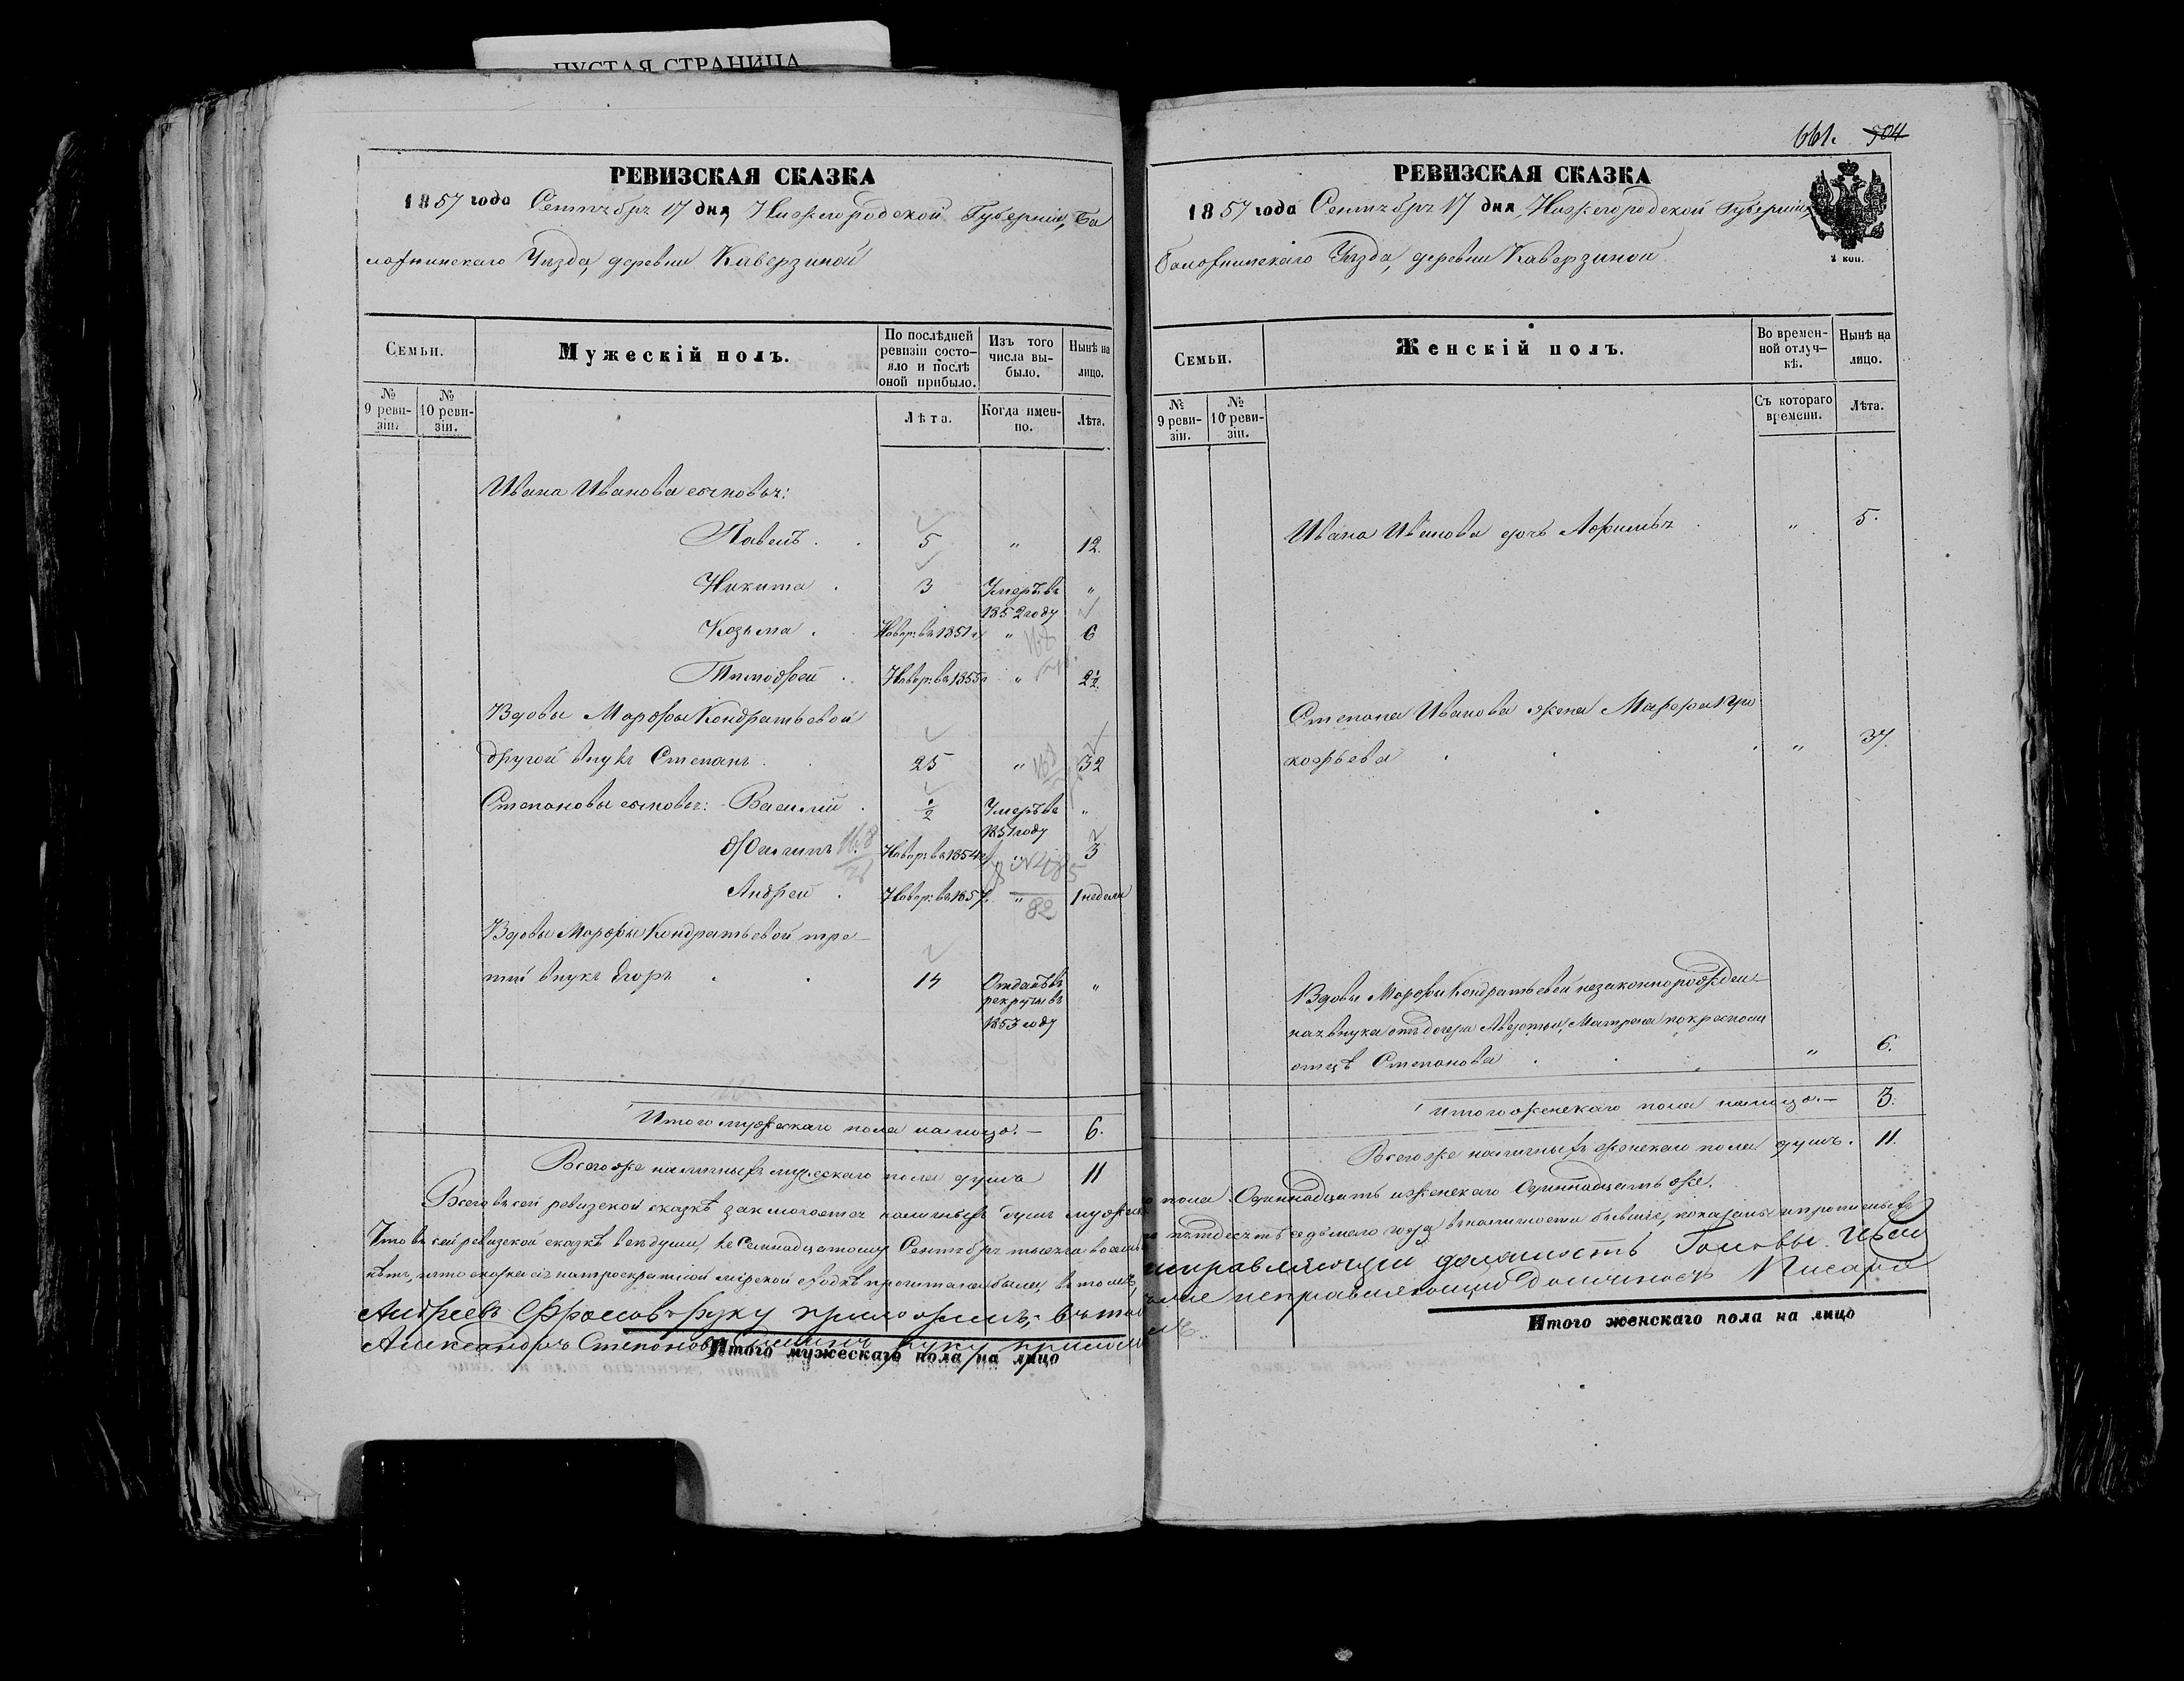 ПУСТАЯ СТРАНИЦА
РЕВИЗСКАЯ СКАЗКА
1857 года Сентября 17 дня, Нижегородской Губерніи, Ба
лахнинскаго Уѣзда, деревни Каверзиной
Семьи.
Мужескій полъ.
По послѣдней ревизіи состо-
яло и послѣ оной прибыло.
Изъ того числа вы-
было.
Нынѣ на лицо.
№ 9 реви-
зіи.
№ 10 реви-
зіи.
Лѣта.
Когда имен-
но.
Лѣта.
Ивана Иванова сыновья:
Павелъ . . 5 " 12.
Никита . 3 Умеръ въ "
1852 году
Козьма . Новор: въ 1851 г " 6
Тимофей . Новор: въ 1855 г " 2½
Вдовы Марфы Кондратьевой
другой внукъ Степанъ . . 25 " 32
Степановы сыновья: Василій . ½ Умеръ въ "
1851 году
Филипъ Новор: въ 1854 г " 3
Андрей . Новор: въ 1857 " 1 недели
82
Вдовы Марфы Кондратьевой тре-
тій внукъ Егоръ . . 14 Отданъ въ "
рекруты въ
1853 году
Итого мужескаго пола налицо. — 6.
Всего же наличныхъ мужескаго пола душъ 11
661. 504
РЕВИЗСКАЯ СКАЗКА
1857 года Сентября 17 дня, Нижегородской Губерніи,
Балахнинскаго Уѣзда, деревни Каверзиной
Семьи.
Женскій полъ.
Во времен-
ной отлуч-
кѣ.
Нынѣ на лицо.
№ 9 реви-
зіи.
№ 10 реви-
зіи.
Съ котораго времени.
Лѣта.
Ивана Иванова дочь Афимья . " 5.
Степана Иванова жена Марфа Про
кофьева . . . " 37.
Вдовы Марфы Кондратьевой незаконнорожден-
ная внука отъ дочери Авдотьи, Матрена по крестном
отцѣ Степанова . . . " 6.
Итого женскаго пола налицо. — 3.
Всего же наличныхъ женскаго пола душъ. 11.
Всего въ сей ревизской сказкѣ заключается наличныхъ душъ мужеска
го пола Одиннадцать и женскаго Одиннадцать же.
Что въ сей ревизской сказкѣ все души, къ Семнадцатому Сентября тысяча восемь
пятдесятъ седьмаго года въ наличности бывшіе, показаны и прописныхъ
нѣтъ, и что сказка сія на троекратной мірской сходкѣ прочитана была, въ томъ
исправляющій должность Головы Иван
Андреевъ Фроловъ руку приложилъ, въ том
исправляющій Должность Писаря
Александръ Степановъ руку приложи
лъ.
Итого мужескаго пола на лицо
Итого женскаго пола на лицо